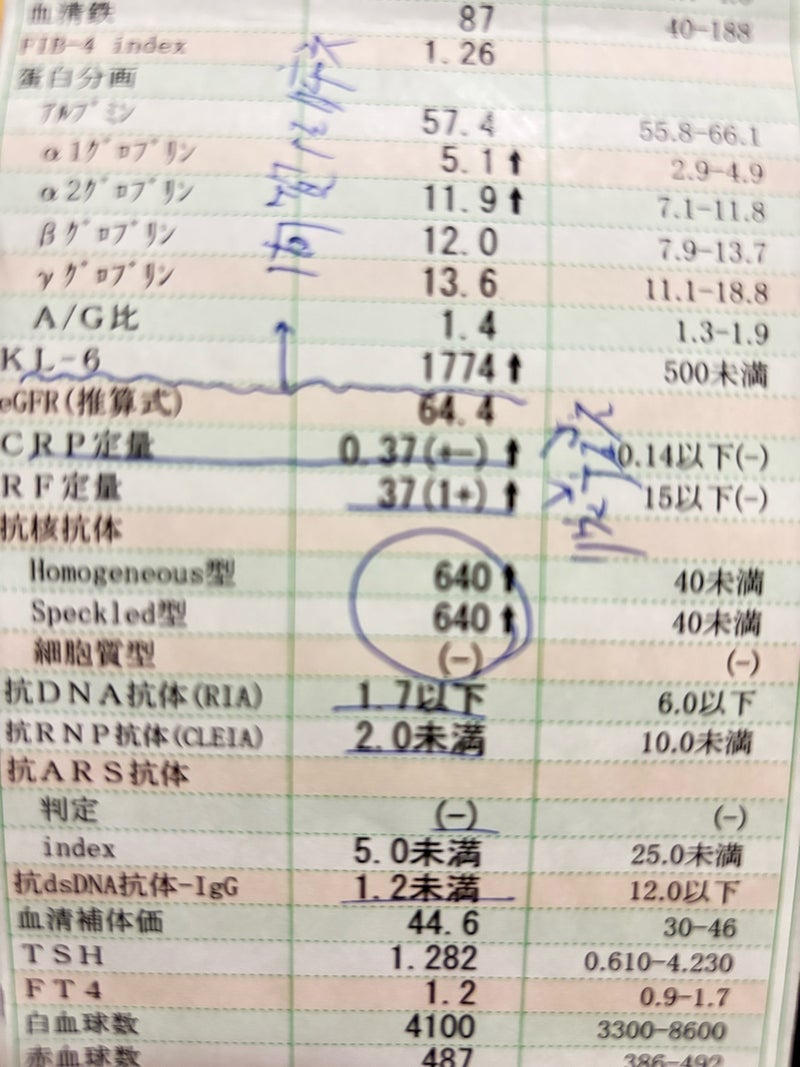 血清鉄 87 40-188
FIB-4 index 1.26
蛋白分画
ｱﾙﾌﾞﾐﾝ 57.4 55.8-66.1
α1ｸﾞﾛﾌﾞﾘﾝ 5.1↑ 2.9-4.9
α2ｸﾞﾛﾌﾞﾘﾝ 11.9↑ 7.1-11.8
βｸﾞﾛﾌﾞﾘﾝ 12.0 7.9-13.7
γｸﾞﾛﾌﾞﾘﾝ 13.6 11.1-18.8
A/G比 1.4 1.3-1.9
ＫＬ-６ 1774↑ 500未満
eGFR(推算式) 64.4
ＣＲＰ定量 0.37(+-)↑ 0.14以下(-)
ＲＦ定量 37(1+)↑ 15以下(-)
抗核抗体
Homogeneous型 640↑ 40未満
Speckled型 640↑ 40未満
細胞質型 (-) (-)
抗ＤＮＡ抗体(RIA) 1.7以下 6.0以下
抗ＲＮＰ抗体(CLEIA) 2.0未満 10.0未満
抗ＡＲＳ抗体
判定 (-) (-)
index 5.0未満 25.0未満
抗dsDNA抗体-IgG 1.2未満 12.0以下
血清補体価 44.6 30-46
ＴＳＨ 1.282 0.610-4.230
ＦＴ４ 1.2 0.9-1.7
白血球数 4100 3300-8600
赤血球数 487 386-492